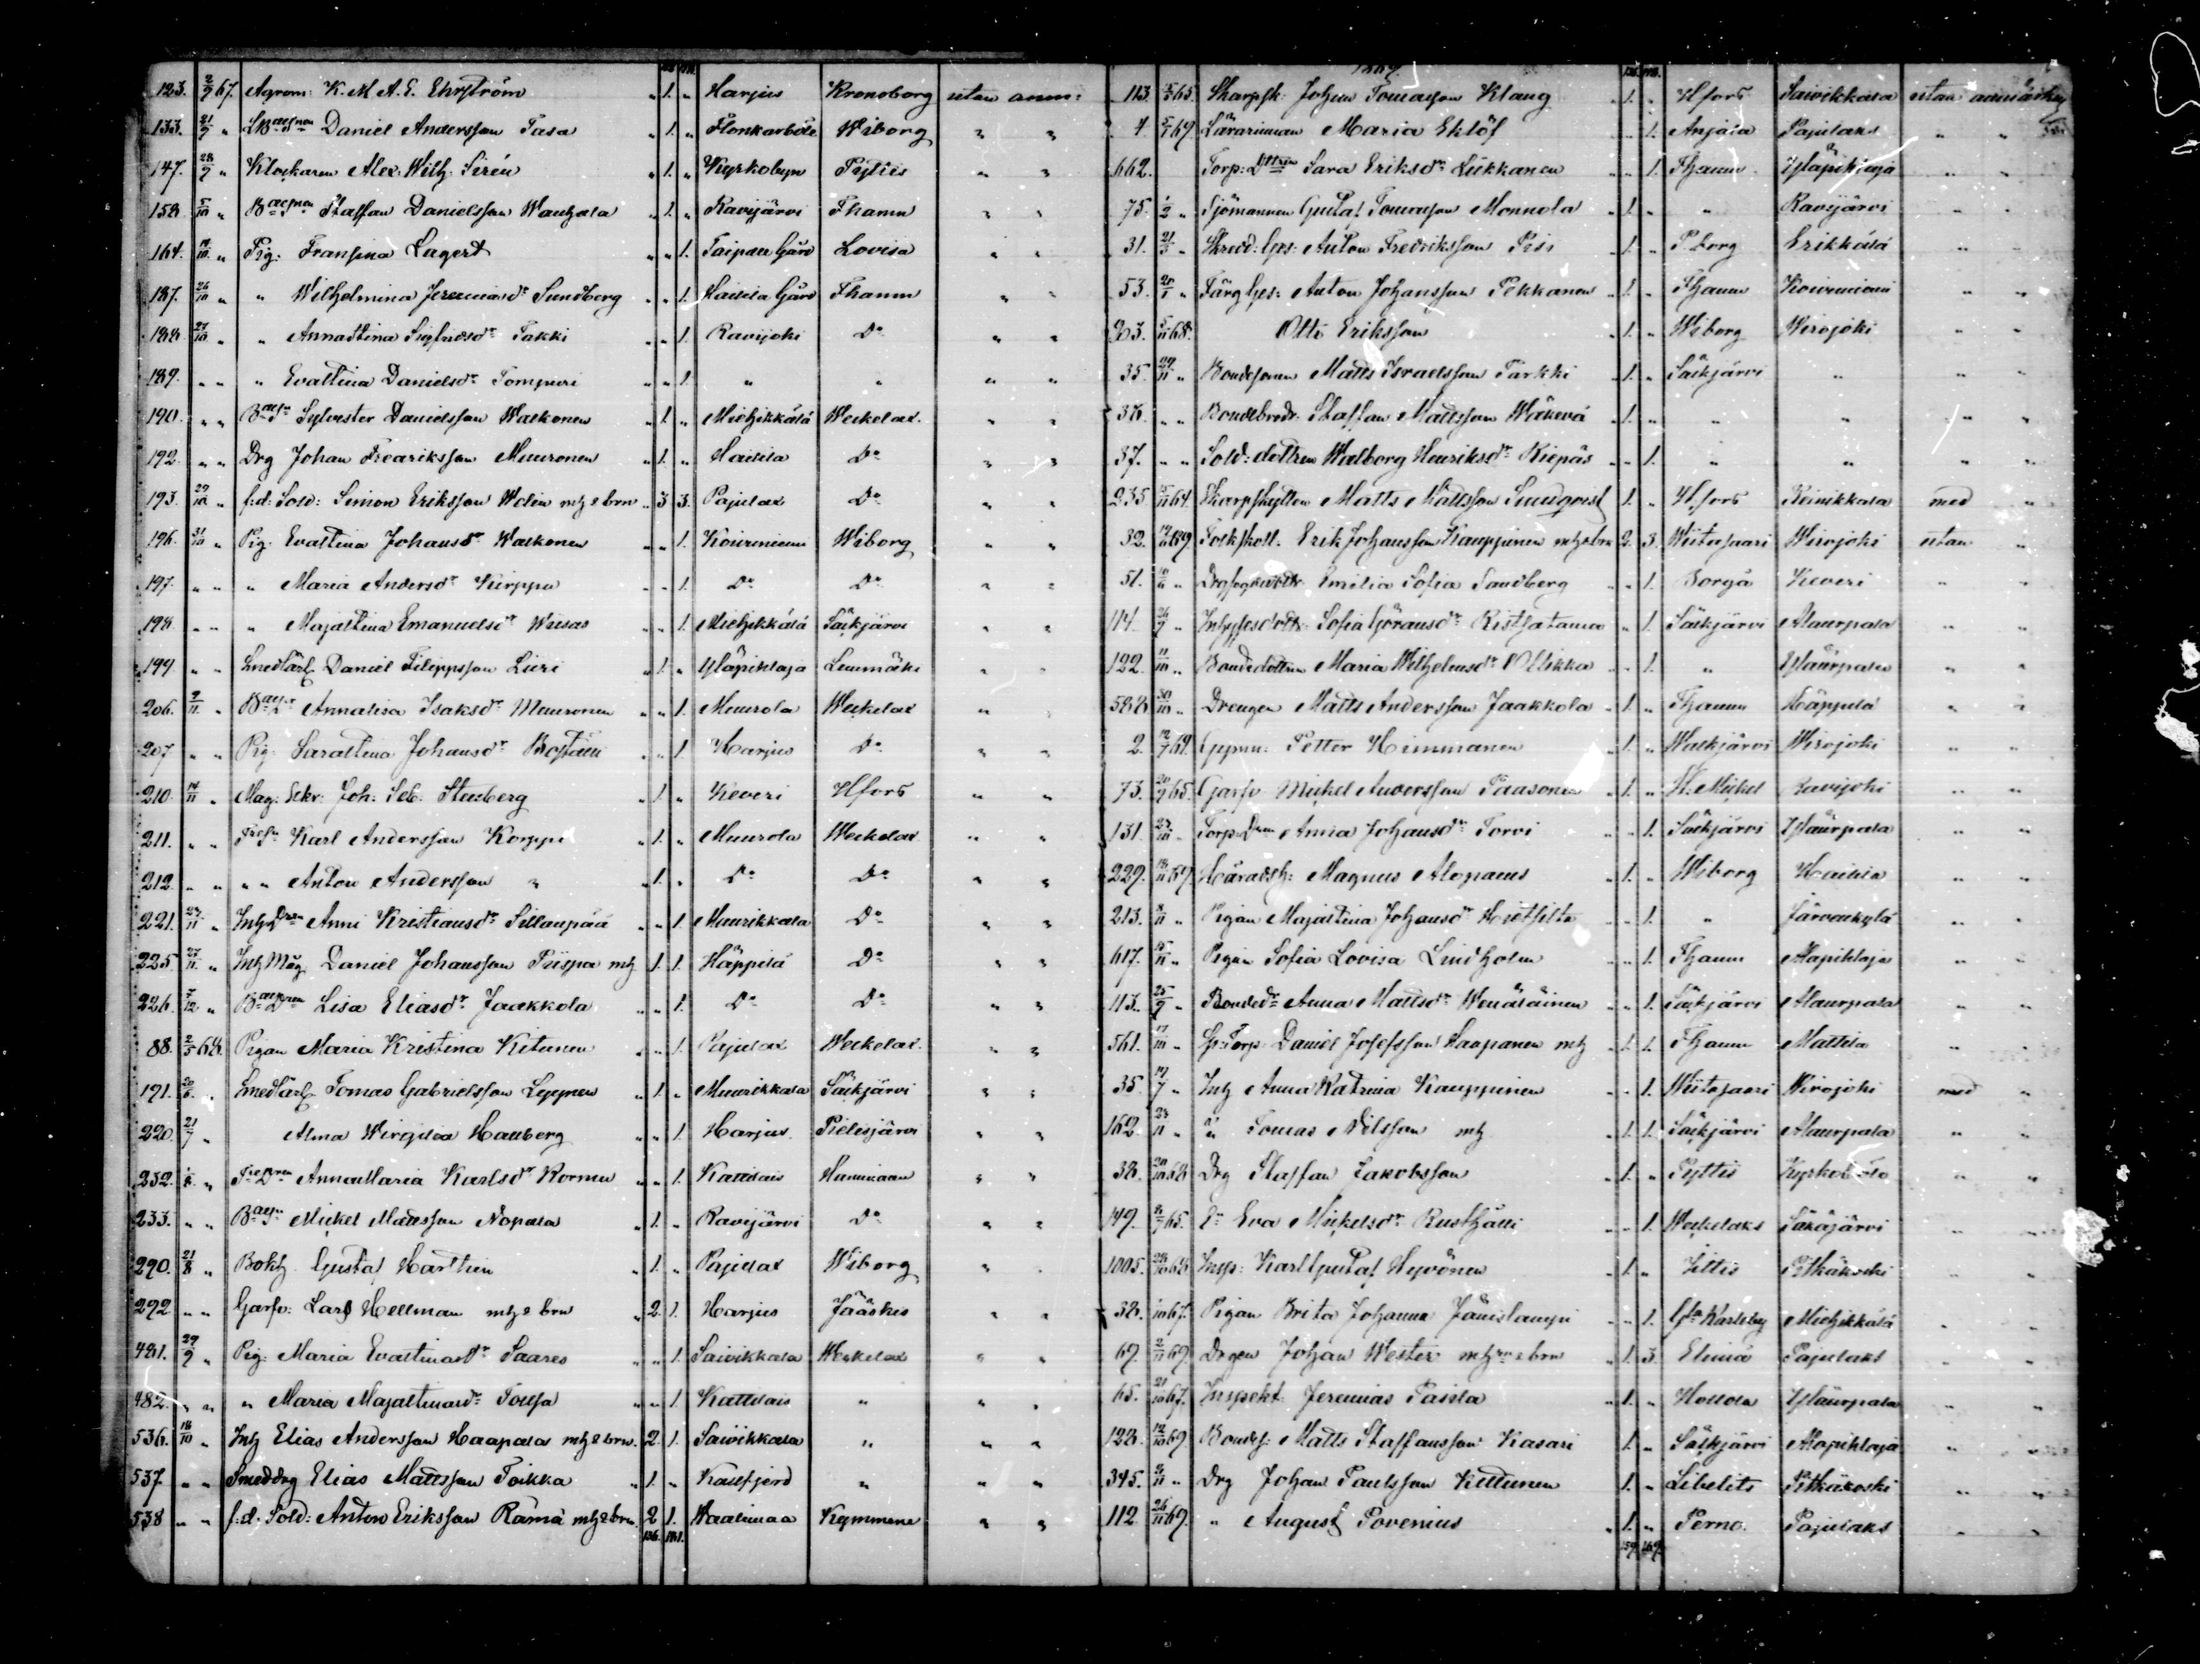 123. 2/9 67. Agrom: K. M. A. G. Ehrström " 1. " Harjus Kronoborg utan anm:
133. 21/9 " Daniel Andersson Tasa " 1. " Flonkarböle Wiborg " "
147. 28/9 " Klockaren Alex. Wilh. Sirén " 1. " Kyrkobyn Pyttis " "
158. 5/10 " Staffan Danielsson Wanhala " 1. " Ravijärvi Fhamn " "
164. 14/10 " Pig: Fransina Lagert " " 1. Taipale Gård Lovisa " "
187. 26/10 " " Wilhelmina Jeremiasdr Sundberg " " 1. Hailila Gård Fhamn " "
188. 27/10 " " Annastina Sigfridsdr Takki " " 1. Ravijoki Do " "
189. " " " Evastina Danielsdr Tompuri " " 1. " " " "
190. " " Sylvester Danielsson Walkonen " 1. " Miehikkälä Weckelax. " "
192. " " Drg Johan Fredriksson Muuronen " 1. " Hailila Do " "
193. 29/10 " f:d: Sold: Simon Eriksson Wolin mh & brn " 3 3. Pajulax Do " "
196. 31/10 " Pig. Evastina Johansdr Walkonen " " 1. Kouvuniemi Wiborg " "
197. " " " Maria Andersdr Kirppu " " 1. Do Do " "
198. " " " Majastina Emanuelsdr Wiisas " " 1. Miehikkälä Säkjärvi " "
199. " " Smedlärl Daniel Filippsson Liiri " 1. " Yläpihlaja Lemmäki " "
206. 9/11 " Annalisa Isaksdr Muuronen " " 1. Muurola Weckelax " "
207. " " Pig: Sarastina Johansdr " " 1 Harjus Do " "
210. 14/11 " Mag: Sekr: Joh: Seb. Stenberg " 1 " Keveri Hfors " "
211. " " Karl Andersson Korppi " 1. " Muurola Weckelax " "
212. " " " " Anton Andersson " " 1. " Do Do " "
221. 23/11 " Anni Kristiansdr Sillanpää " " 1 Muurikkala Do " "
225. 27/11 " Daniel Johansson Piispa mh 1. 1. Häppilä Do " "
226. 7/12 " Lisa Eliasdr Jaakkola " " 1. Do Do " "
88. 2/5 68. Pigan Maria Kristina Kitunen " " 1. Pajulax Weckelax. " "
191. 20/6 " Smedlärl Tomas Gabrielsson Leppnen " 1. " Muurikkala Säkjärvi " "
220. 21/7 " Alma Wirginia Hauberg " " 1. Harjus Pielisjärvi " "
232. /8 " Anna Maria Karlsdr Kormu " " 1. Kattelais " "
233. " " Mickel Mattsson Nopala " 1. " Ravijärvi Do " "
290. 21/8 " Bokh Gustaf Harthen " 1. " Pajulax Wiborg " "
292 " " Garfv: Lars Hellman mh & brn " 2. 1. Harjus Jääskis " "
481. 29/9 " Pig: Maria Evastinasdr Saares " " 1. Saivikkala Weckelax " "
482. " " " Maria Majastinasdr Toufa " " 1. Kattelais " " "
536. 18/10 " Inh Elias Andersson Haapala mh & brn. 2. 1. Saivikkala " " "
537. " " Smeddrg Elias Mattsson Toikka " 1. " Kallfjerd " " "
538 " " f:d. Sold: Anton Eriksson Rämä mh & brn. 2 1. Vaalimaa Kymmene " "
136. 141.
1869.
113. 65. Skarpsk: Johan Tomasson Klang " 1. " Hfors Saivikkala utan anmärkn
4. 69. Lärarinnan Maria Eklöf " " 1. Anjala Pajulaks " "
662. Torp: Dttren Sara Eriksdr Liikkanen " " 1. Fhamn Yläpihlaja " "
75. 1/2 " Sjömannen Gustaf Tomasson Monnola " 1. " " Ravijärvi " "
31. 21/3 " Skredd: Ges: Anton Fredriksson Piis " 1. " Pborg Erikkälä " "
53. " Färg Ges: Anton Johansson Pekkanen " 1. " Fhamn Kouvuniemi " "
68. Otto Eriksson " 1. " Wiborg Wirojoki " "
35. 29/11 " Bondsonen Matts Israelsson Tarkki " 1. " Säkjärvi " " "
36. " " Bondebrodr. Staffan Mattsson Wäkevä " 1. " " " " "
37. " " Sold: dottren Walborg Henriksdr Kiepäs " " 1. " " " "
235. 64. Skarpskytten Matts Mattsson Sundqvist 1. " Hfors Reinikkala med "
32. 69 Folkskoll. Erik Johansson Kauppinen mh & brn 2. 3. Wiitasaari Wirojoki utan "
51. " Emilia Sofia Sandberg " " 1. Borgå Keveri " "
114. 26/9 " Sofia Göransdr Ristsatama " " 1. Säkjärvi Alaurpala " "
122. 11/10 " Bondedottren Maria Wilhelmsdr Ollikka " " 1. " Yläurpala " "
588 30/10 " Drengen Matts Andersson Jaakkola " 1. " Fhamn Häppilä " "
2. Gymn: Petter Himmanen " 1. " Walkjärvi Wirojoki " "
73. 20/9 65. Garfv Mickel Andersson Paasonen " 1. " St. Mickel Ravijoki " "
131. 23/10 " Anna Johansdr Torvi " " 1. Säkjärvi Yläurpala " "
229. Häradsh: Magnus Alopaeus " 1. " Wiborg Hailila " "
213. 8/11 " Pigan Majastina Johansdr " " 1. " Järvenkylä " "
617. 15/11 " Pigan Sofia Lovisa Lindholm " " 1. Fhamn Alapihlaja " "
113. 25/9 " Bondedr Anna Mattsdr Wenäläinen " " 1. Säkjärvi Alaurpala " "
561. 17/10 " Daniel Josefsson Haapanen mh " 1. 1. Fhamn Mattila " "
35. 17/7 " Inh Anna Katrina Kauppinen " " 1. Wiitasaari Wirojoki med "
162. 23/11 " " Tomas Nilsson mh " 1. 1. Säkjärvi Alaurpala " "
38. 20/10 68 Drg Staffan Jakobsson " 1. " Pyttis " "
149. 65. Eva Mickelsdr " " 1. Weckelaks Säkäjärvi " "
1005. 68 Insp: Karl Gustaf Hyvönen " 1. " Iittis Pitkäkoski " "
38. 67. Pigan Brita Johanna Jänislampi " " 1. Gla Karleby Miehikkälä " "
69. 2/11 69 Drgen Johan Wester " 1. 3. Elimä Pajulaks " "
65. 21/10 67. Inspekt Jeremias Paisla " 1. " Hollola Yläurpala " "
128. 12/10 69 Bondes: Matts Staffansson Kasari 1. " Säkjärvi Alapihlaja " "
345. 2/11 " Drg Johan Paulsson Kettunen 1. " Libelits Pitkäkoski " "
112. 26/11 69. " August Povenius " 1. " Perno. Pajulaks " "
159. 169.